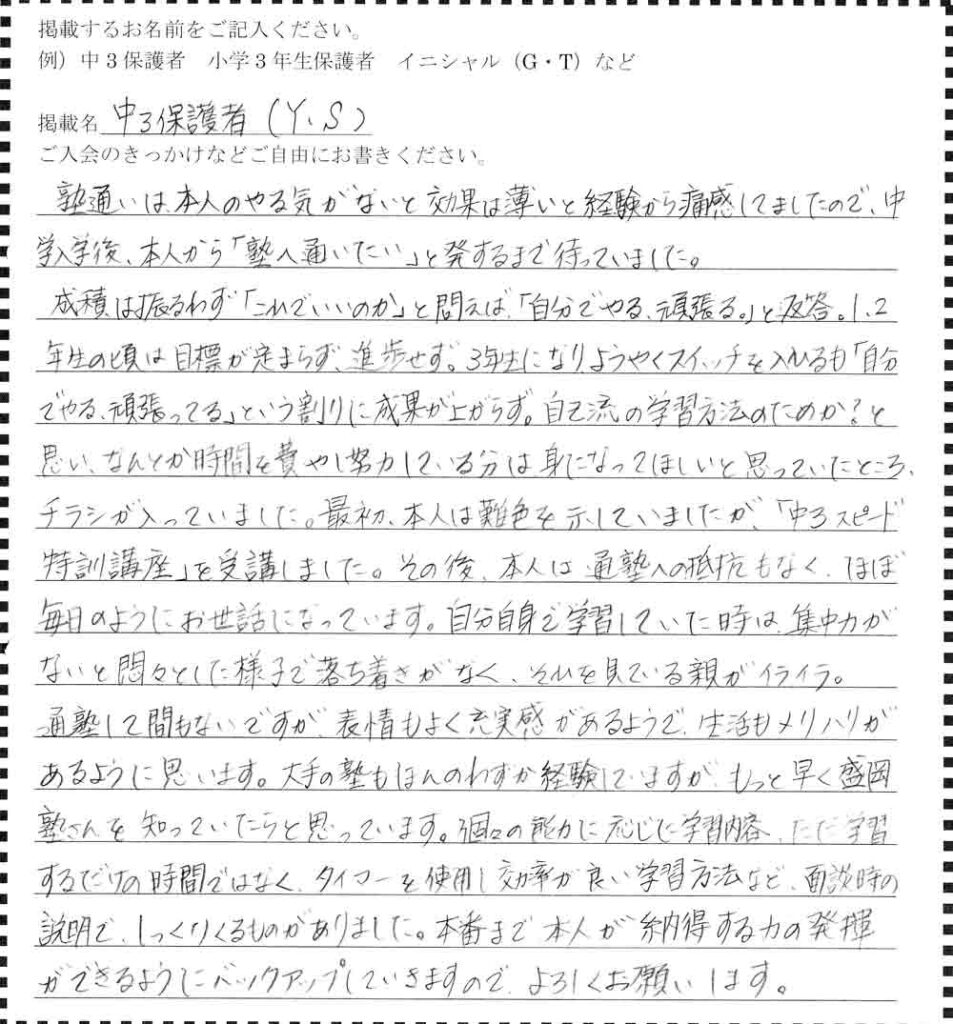 掲載するお名前をご記入ください。
例）中３保護者　小学３年生保護者　イニシャル（G・T）など
掲載名 中３保護者（Y、S）
ご入会のきっかけなどご自由にお書きください。
塾通いは、本人のやる気がないと効果は薄いと経験から痛感してましたので、中
学入学後、本人から「塾へ通いたい」と発するまで待っていました。
成積は振るわず「これでいいのか」と問えば、「自分でやる、頑張る。」と返答。１、２
年生の頃は目標が定まらず、進歩せず。３年生になりようやくスイッチを入れるも「自分
でやる、頑張ってる」という割りに成果が上がらず。自己流の学習方法のためか？と
思い、なんとか時間を費やし努力している分は身になってほしいと思っていたところ、
チラシが入っていました。最初、本人は難色を示していましたが、「中３スピード
特訓講座」を受講しました。その後、本人は通塾への抵抗もなく、ほぼ
毎日のようにお世話になっています。自分自身で学習していた時は、集中力が
ないと悶々とした様子で落ち着きがなく、それを見ている親がイライラ。
通塾して間もないですが、表情もよく充実感があるようで、生活もメリハリが
あるように思います。大手の塾もほんのわずか経験していますが、もっと早く盛岡
塾さんを知っていたらと思っています。個々の能力に応じた学習内容、ただ学習
するだけの時間ではなく、タイマーを使用し効率が良い学習方法など、面談時の
説明で、しっくりくるものがありました。本番まで本人が納得する力の発揮
ができるようにバックアップしていきますので、よろしくお願いします。